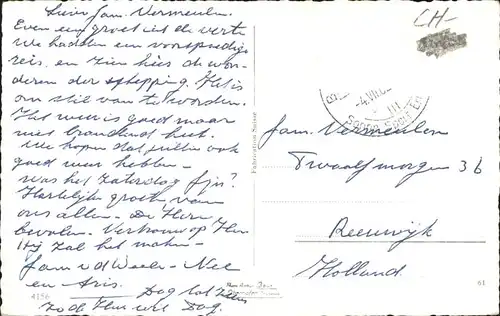 Lieve fam. Vermeulen.
Even een groet uit de verte
We hadden een voorspoedige
reis. en zien hier de won-
deren der schepping. Het is
om stil van te worden.
Het weer is goed maar
niet brandend heet.
We hopen dat jullie ook
goed weer hebben -
was het Zaterdag fijn?
Hartelijke groeten van
ons allen. De Heer
bevolen. Vertrouw op Hem
Hij zal het maken
fam v d - Nel
en Aris. Dag tot ziens
zo de Heer wil Dag.
4156
Fabrication Suisse
CH-
-4.VIII.
fam. Vermeulen
Twaalfmorgen 36
Reeuwijk
Holland.
61